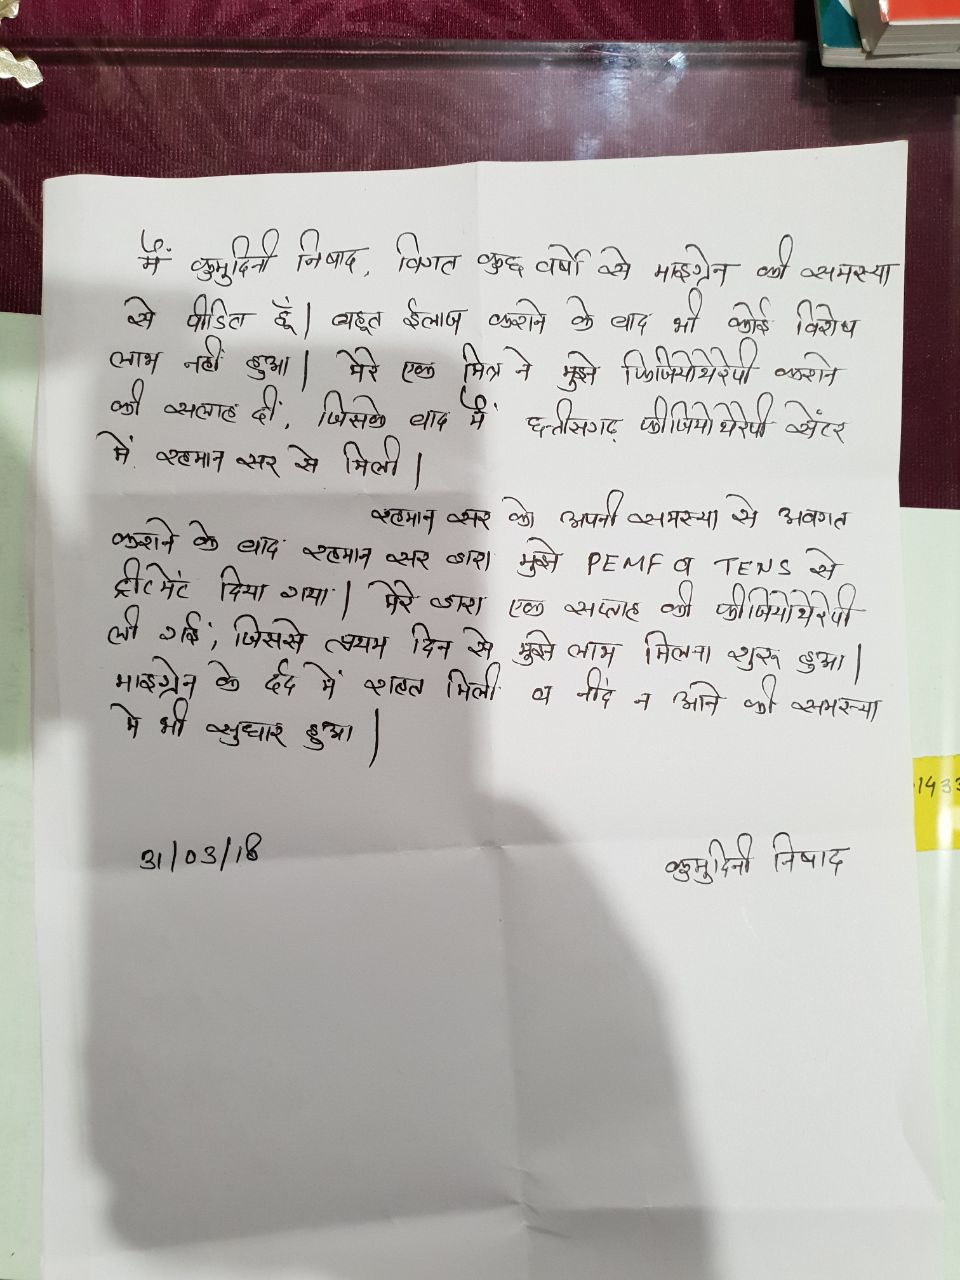 मैं कुमुदिनी निषाद, विगत कुछ वर्षों से माइग्रेन की समस्या
से पीडित हूँ। बहुत ईलाज कराने के बाद भी कोई विशेष
लाभ नहीं हुआ। मेरे एक मित्र ने मुझे फिजियोथेरेपी कराने
की सलाह दी, जिसके बाद मैं छत्तीसगढ़ फीजियोथेरेपी सेंटर
में रहमान सर से मिली।
रहमान सर को अपनी समस्या से अवगत
कराने के बाद रहमान सर द्वारा मुझे PEMF व TENS से
ट्रीटमेंट दिया गया। मेरे द्वारा एक सप्ताह की फीजियोथेरेपी
ली गई, जिससे प्रथम दिन से मुझे लाभ मिलना शुरू हुआ।
माइग्रेन के र्दद में राहत मिली व नींद न आने की समस्या
मे भी सुधार हुआ।
31/03/18
कुमुदिनी निषाद
1433